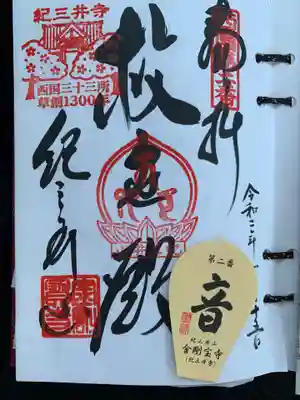 奉拝
令和三年
救世殿
紀三井寺
紀三井寺
西国三十三所
草創1300年
第二番
音
紀三井山
金剛宝寺
(紀三井寺)